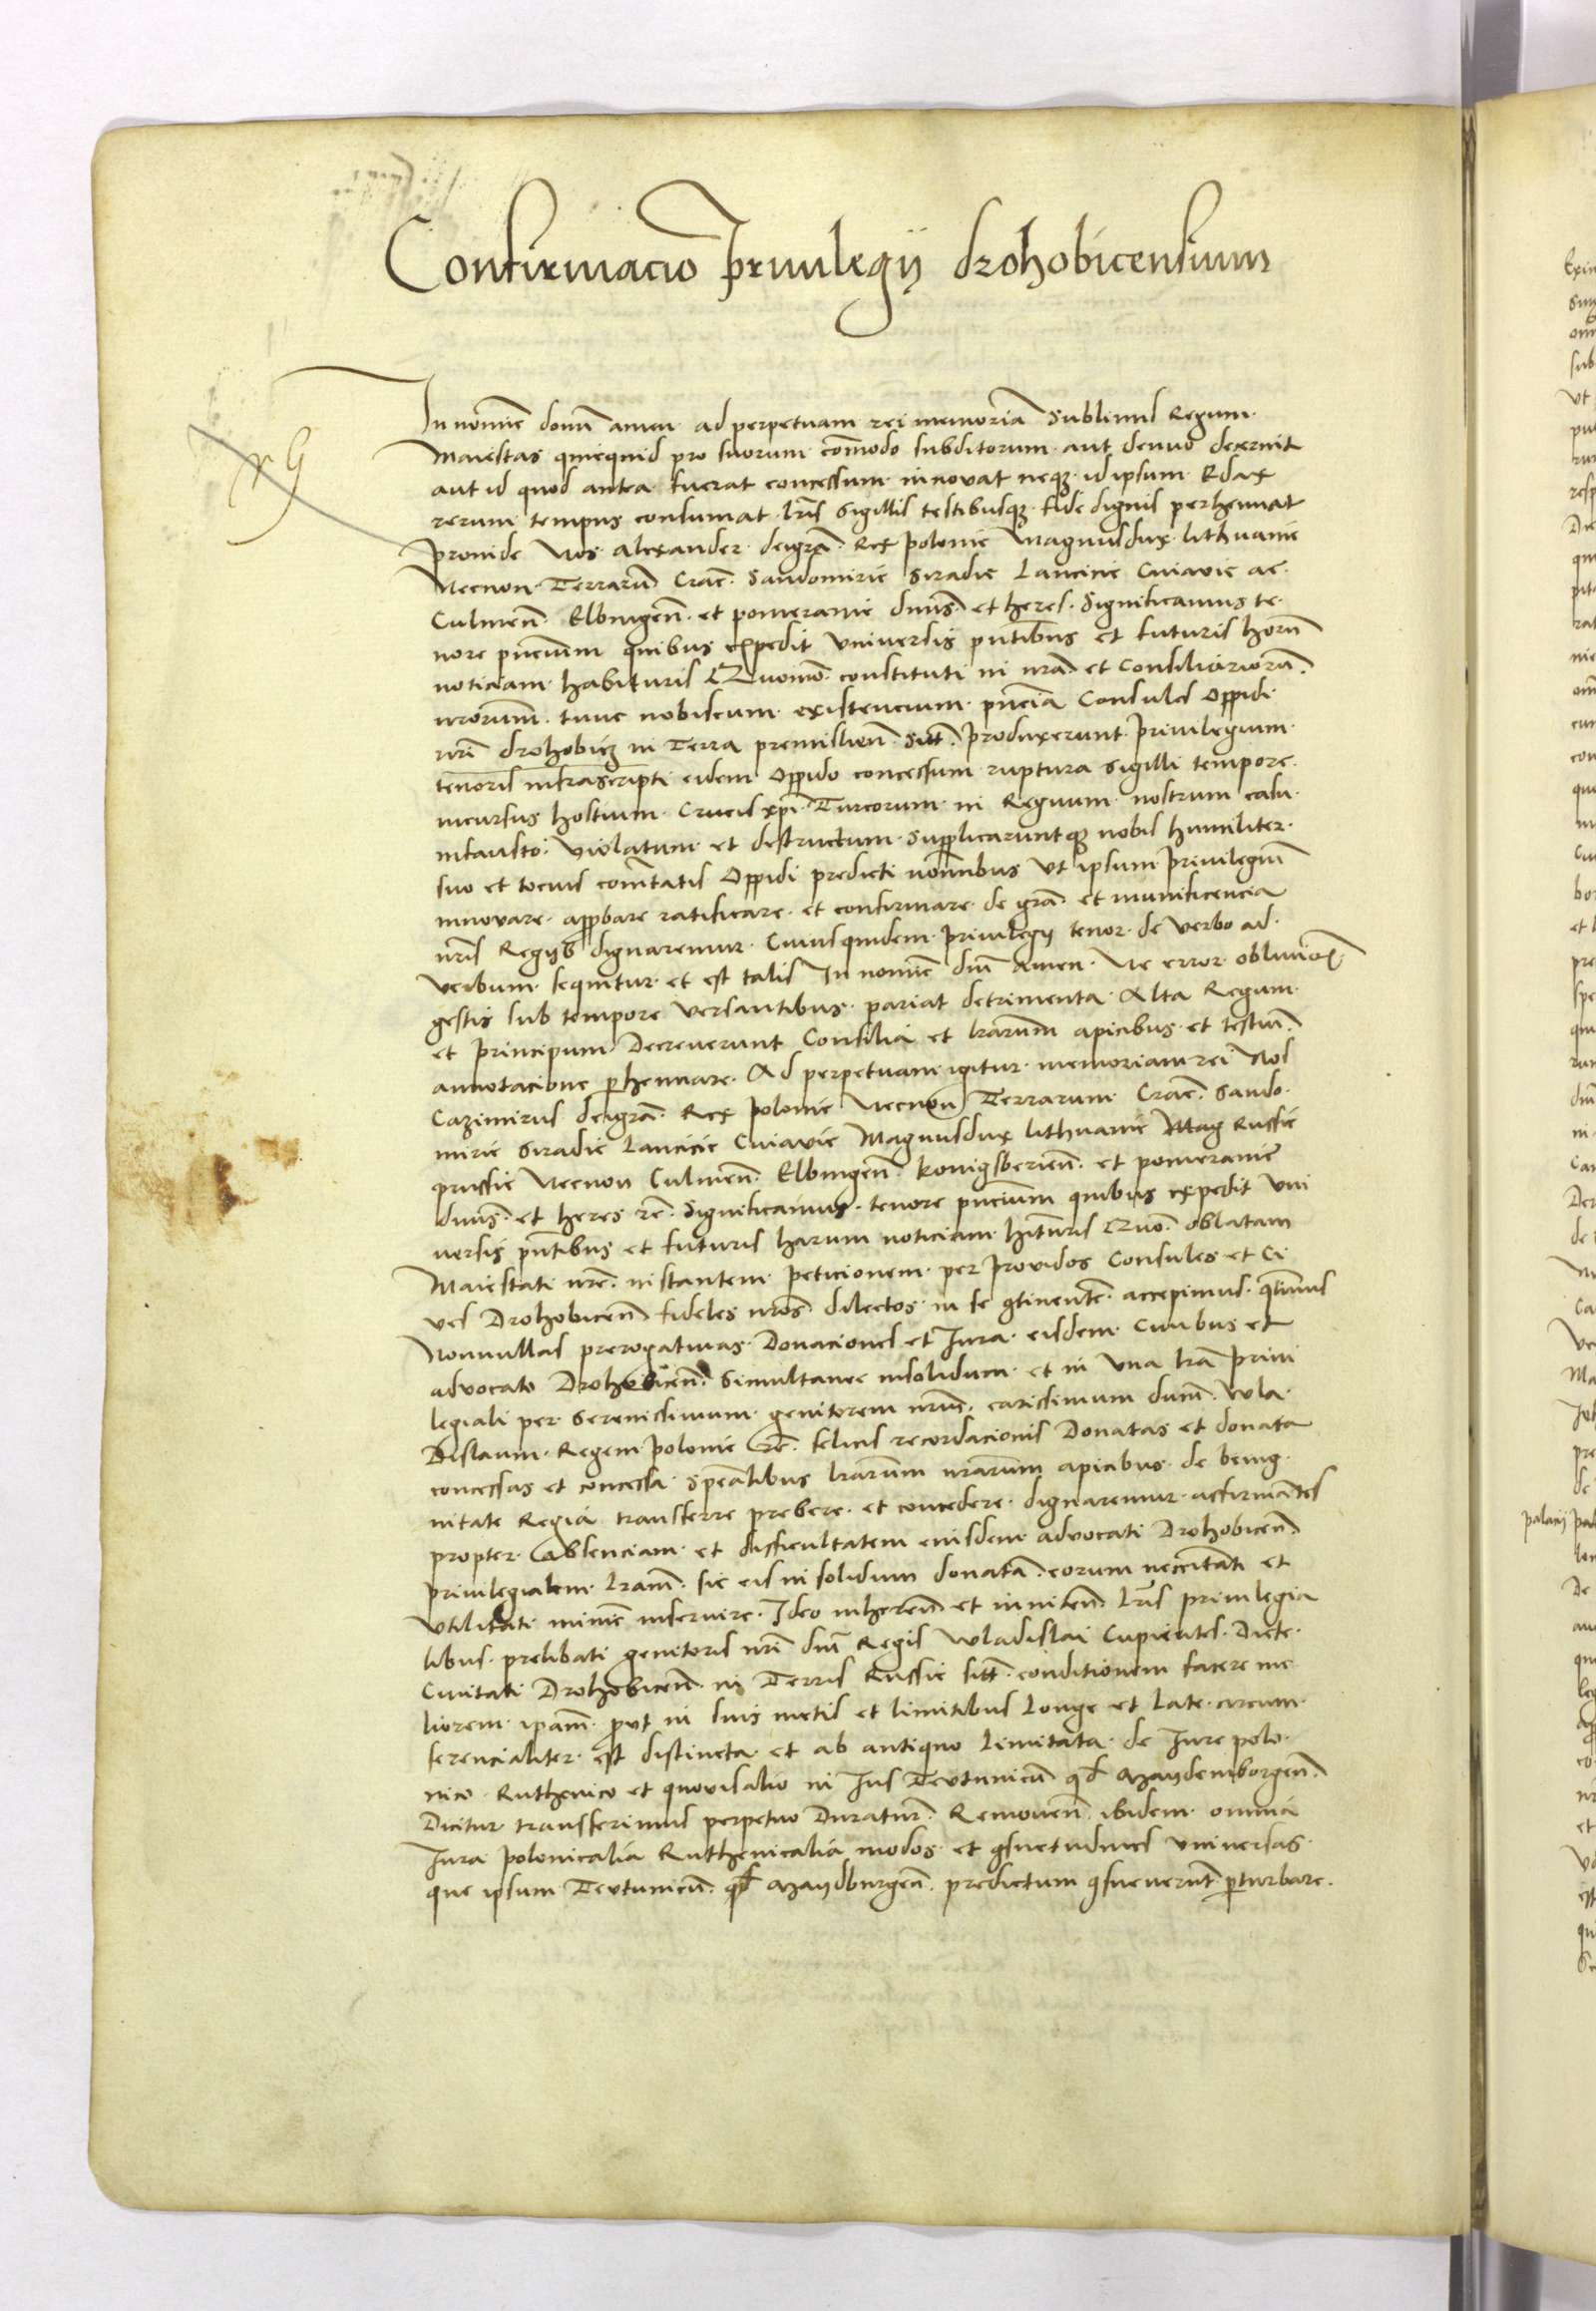 Confirmacio privilegij drohobicensium
In nomine domini amen ad perpetuam rei memoriā Sublimis Regum
Maiestas quicquid pro suorum cōmodo subditorum aut denuo decernit
aut id quod antea fuerat concessum innovat neqꝫ id ipsum Edax
rerum tempus consumat lrīs sigillis testibusqꝫ fide dignis perhennat
proinde Nos Alexander deigrā Rex polonie Magnusdux lithuanie
Necnon Terrarū Crac̄ Sandomirie Siradie Lancicie Cuiavie ac
Culmeñ Elbingeñ et pomeranie dnus̄ et heres Significamus te
nore pn̄cium quibus expedit universis pn̄tibus et futuris horū
noticiam habituris Quomō constituti in nrā et Consiliariorū
nrōrum tunc nobiscum existencium pn̄cia Consules Oppidi
nrī drohobicz in Terra premislieñ sitī produxerunt privilegium
tenoris infrascripti eidem Oppido concessum ruptura sigilli tempore
incursus hostium Crucis xpī Turcorum in Regnum nostrum casu
infausto violatum et destructum supplicaruntqꝫ nobis humiliter
suo et tocius com̄tatis Oppidi predicti nōinibus Ut ipsum privilegiū
innovare approbare ratificare et confirmare de grā et munificencia
nrīs Regijs dignaremur Cuiusquidem privilegij tenor de verbo ad
verbum sequitur et est talis In nomine dnī Amen Ne error oblivioīs
gestis sub tempore versantibus pariat detrimenta Alta Regum
et principum Decreverunt Consilia et lrārum apicibus et testiū
annotacione perhennare Ad perpetuam igitur memoriam rei Nos
Cazimirus deigrā Rex polonie Necnon Terrarum Crac̄ Sando
mirie Siradie Lancicie Cuiavie Magnusdux lithuanie Mag Russie
prussie Necnon Culmeñ Elbingeñ konigsberieñ et pomeranie
dnus̄ et heres rc̄ Significamus tenore pn̄cium quibus expedit uni
versis pn̄tibus et futuris harum noticiam hituris Quō oblatam
Maiestati nrē instantem peticionem per providos Consules et Ci
ves Drohobiceñ fideles nrōs dilectos in se 9tinentē accepimus q̄tinus
Nonnullas prerogativas Donaciones et Jura eisdem Civibus et
advocato Drohobiceñ Simultanee insolidum et in Una lrā privi
legiali per Serenissimum genitorem nrūm carissimum dnūm Wla
dislaum Regem polonie rc̄ felicis recordacionis Donatas et donata
concessas et concessa spēalibus lrārum nrārum apicibus de benig
nitate Regia transferre prebere et concedere dignaremur asfirmātes
propter absenciam et difficultatem eiusdem advocati Drohobiceñ
privilegialem lrām sic eis in solidum donatā eorum nēccitati et
Utilitati minime inservire Ideo inhereñ et inniteñ lrīs privilegia
libus prelibati genitoris nrī dnī Regis Wladislai Cupientes Dicte
Civitati Drohobiceñ in Terris Russie sitē conditionem facere me
liorem ipam̄ prout in suis metis et limitibus Longe et Late circum
ferencialiter est distincta et ab antiquo Limitata de Jure polo
nico Ruthenico et quovisalio in Jus Teutunicū qd Maydemborgeñ
Dicitur transferimus perpetuo Duraturū Removeñ ibidem omnia
Jura polonicalia Ruthenicalia modos et 9suetudines universas
que ipsum Teutunicū qd Maydburgeñ predictum 9sueverūt perturbare
palacij